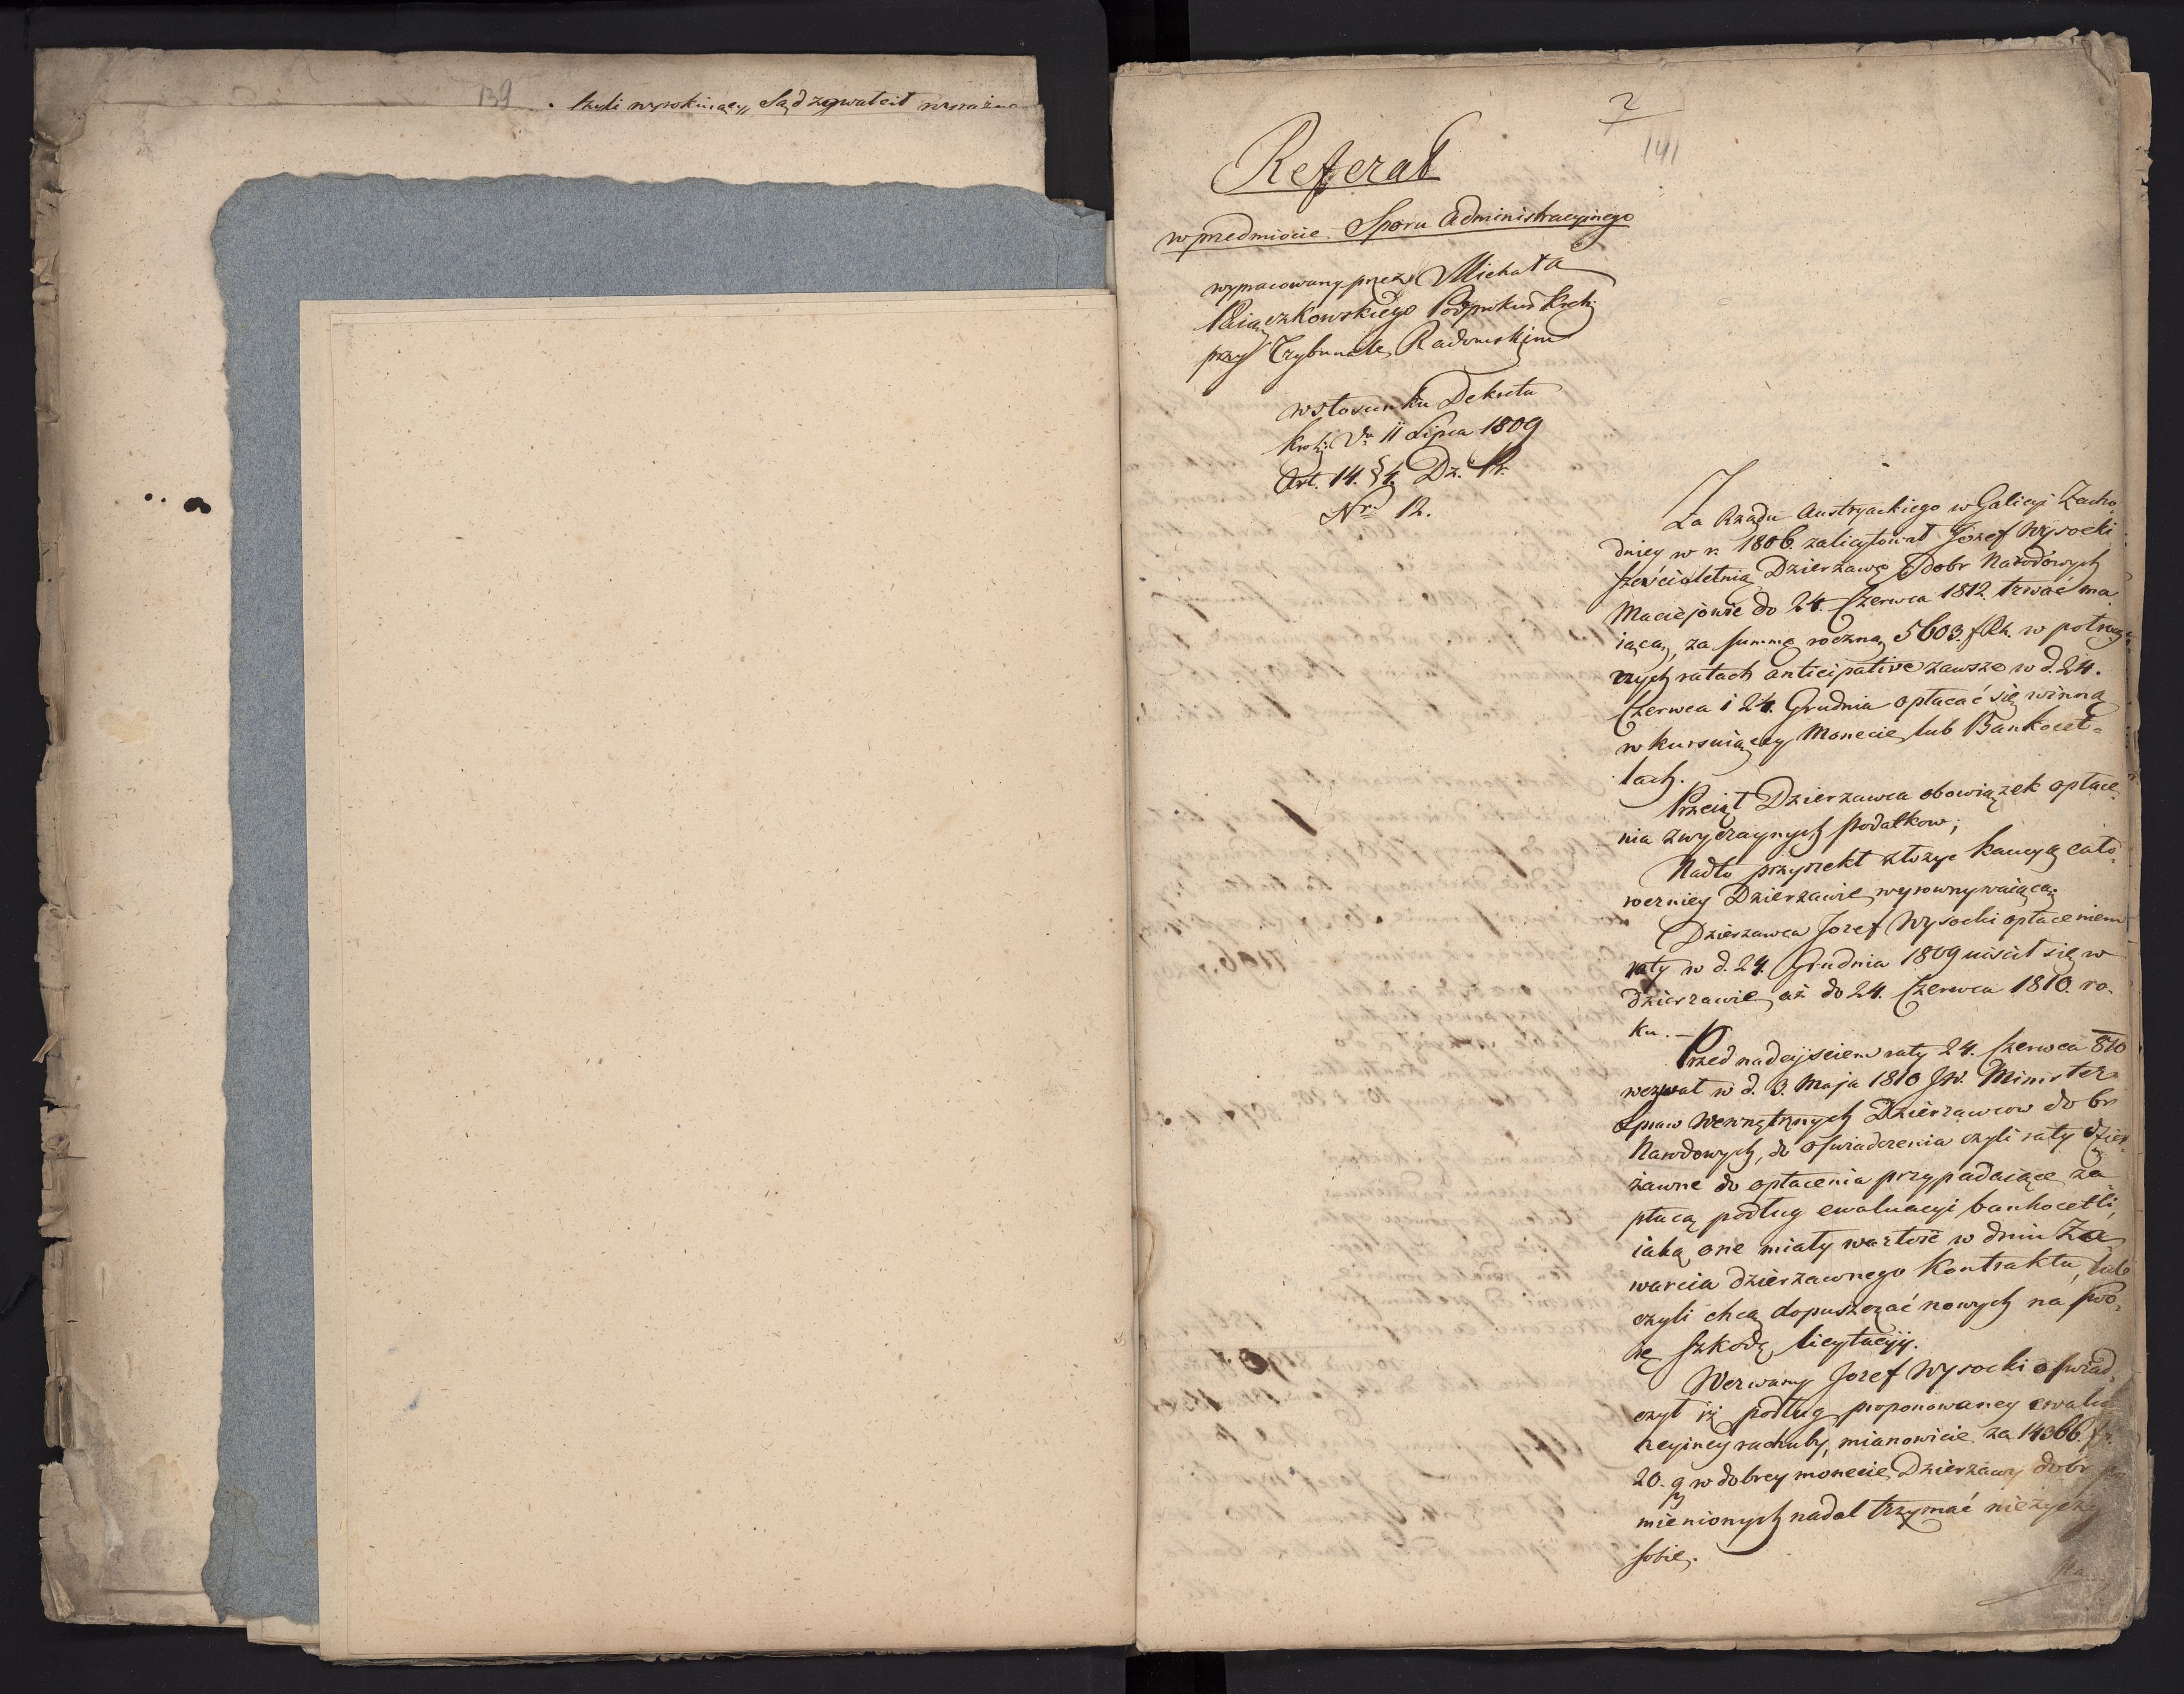 139
czyli wyrokuiący Sąd
2
141
Referat
w przedmiocie Sporu Administracyinego
wypracowany przez Michała
Podprokur. Król:
przy Trybunale Radomskim
w stosunku Dekretu
Król: Dn. 11 Lipca 1809
Art. 14. § 4. Dz. Pr.
Nr 12.
Za Rządu Austryackiego w Galicyi Zacho„
dniey w r. 1806. zalicytował Józef Wysocki
sześcioletnią Dzierzawę Dobr Narodowych
Maciejowie do 24. Czerwca 1812. trwać ma„
iącą, za summę roczną 5603. fRh. w połrocz„
nych ratach anticipative zawsze w d. 24.
Czerwca i 24. Grudnia opłacać się winną
w kursuiącey Monecie, lub Bankocet„
lach.
Przeiął Dzierzawca obowiązek opłace„
nia zwyczaynych Podatkow;
Nadto przyrzekł złożyć kaucyą cało„
roczniey Dzierzawie wyrownywaiącą.
Dzierzawca Jozef Wysocki opłaceniem
raty w d. 24. Grudnia 1809 uiścił się w
dzierzawie, aż do 24. Czerwca 1810. ro„
ku. —
Przed nadeyściem raty 24. Czerwca 810
wezwał w d. 3. Maja 1810 JW. Minister
Spraw Wewnętrznych Dzierzawcow dobr
Narodowych, do oświadczenia czyli raty dzier„
żawne do opłacenia przypadaiące za„
płacą podług ewaluacyi bankocetli,
iaką one miały wartość w dniu za„
warcia dzierzawnego Kontraktu, lub
czyli chcą dopuszczać nowych na swo„
ię szkodę licytacyy.
Wezwany Jozef Wysocki oświad„
czył iż podług proponowaney ewalu„
acyiney rachuby, mianowicie za 14366. f.
20. g w dobrey monecie Dzierzawy dobr
mienionych nadal trzymać nieżyczy
sobie.